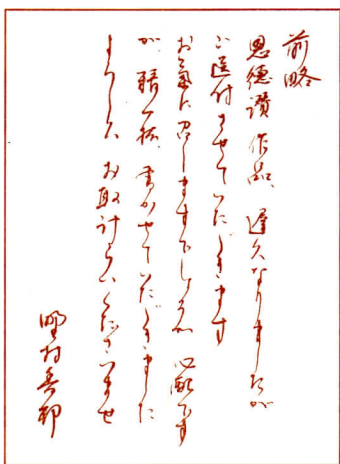 前略
恩徳讃作品、遅くなりましたが
ご送付させていただきます
お気に召しますでしょうか 心配です
が、精一杯、書かせていただきました
よろしくお取計らいくださいませ
野村